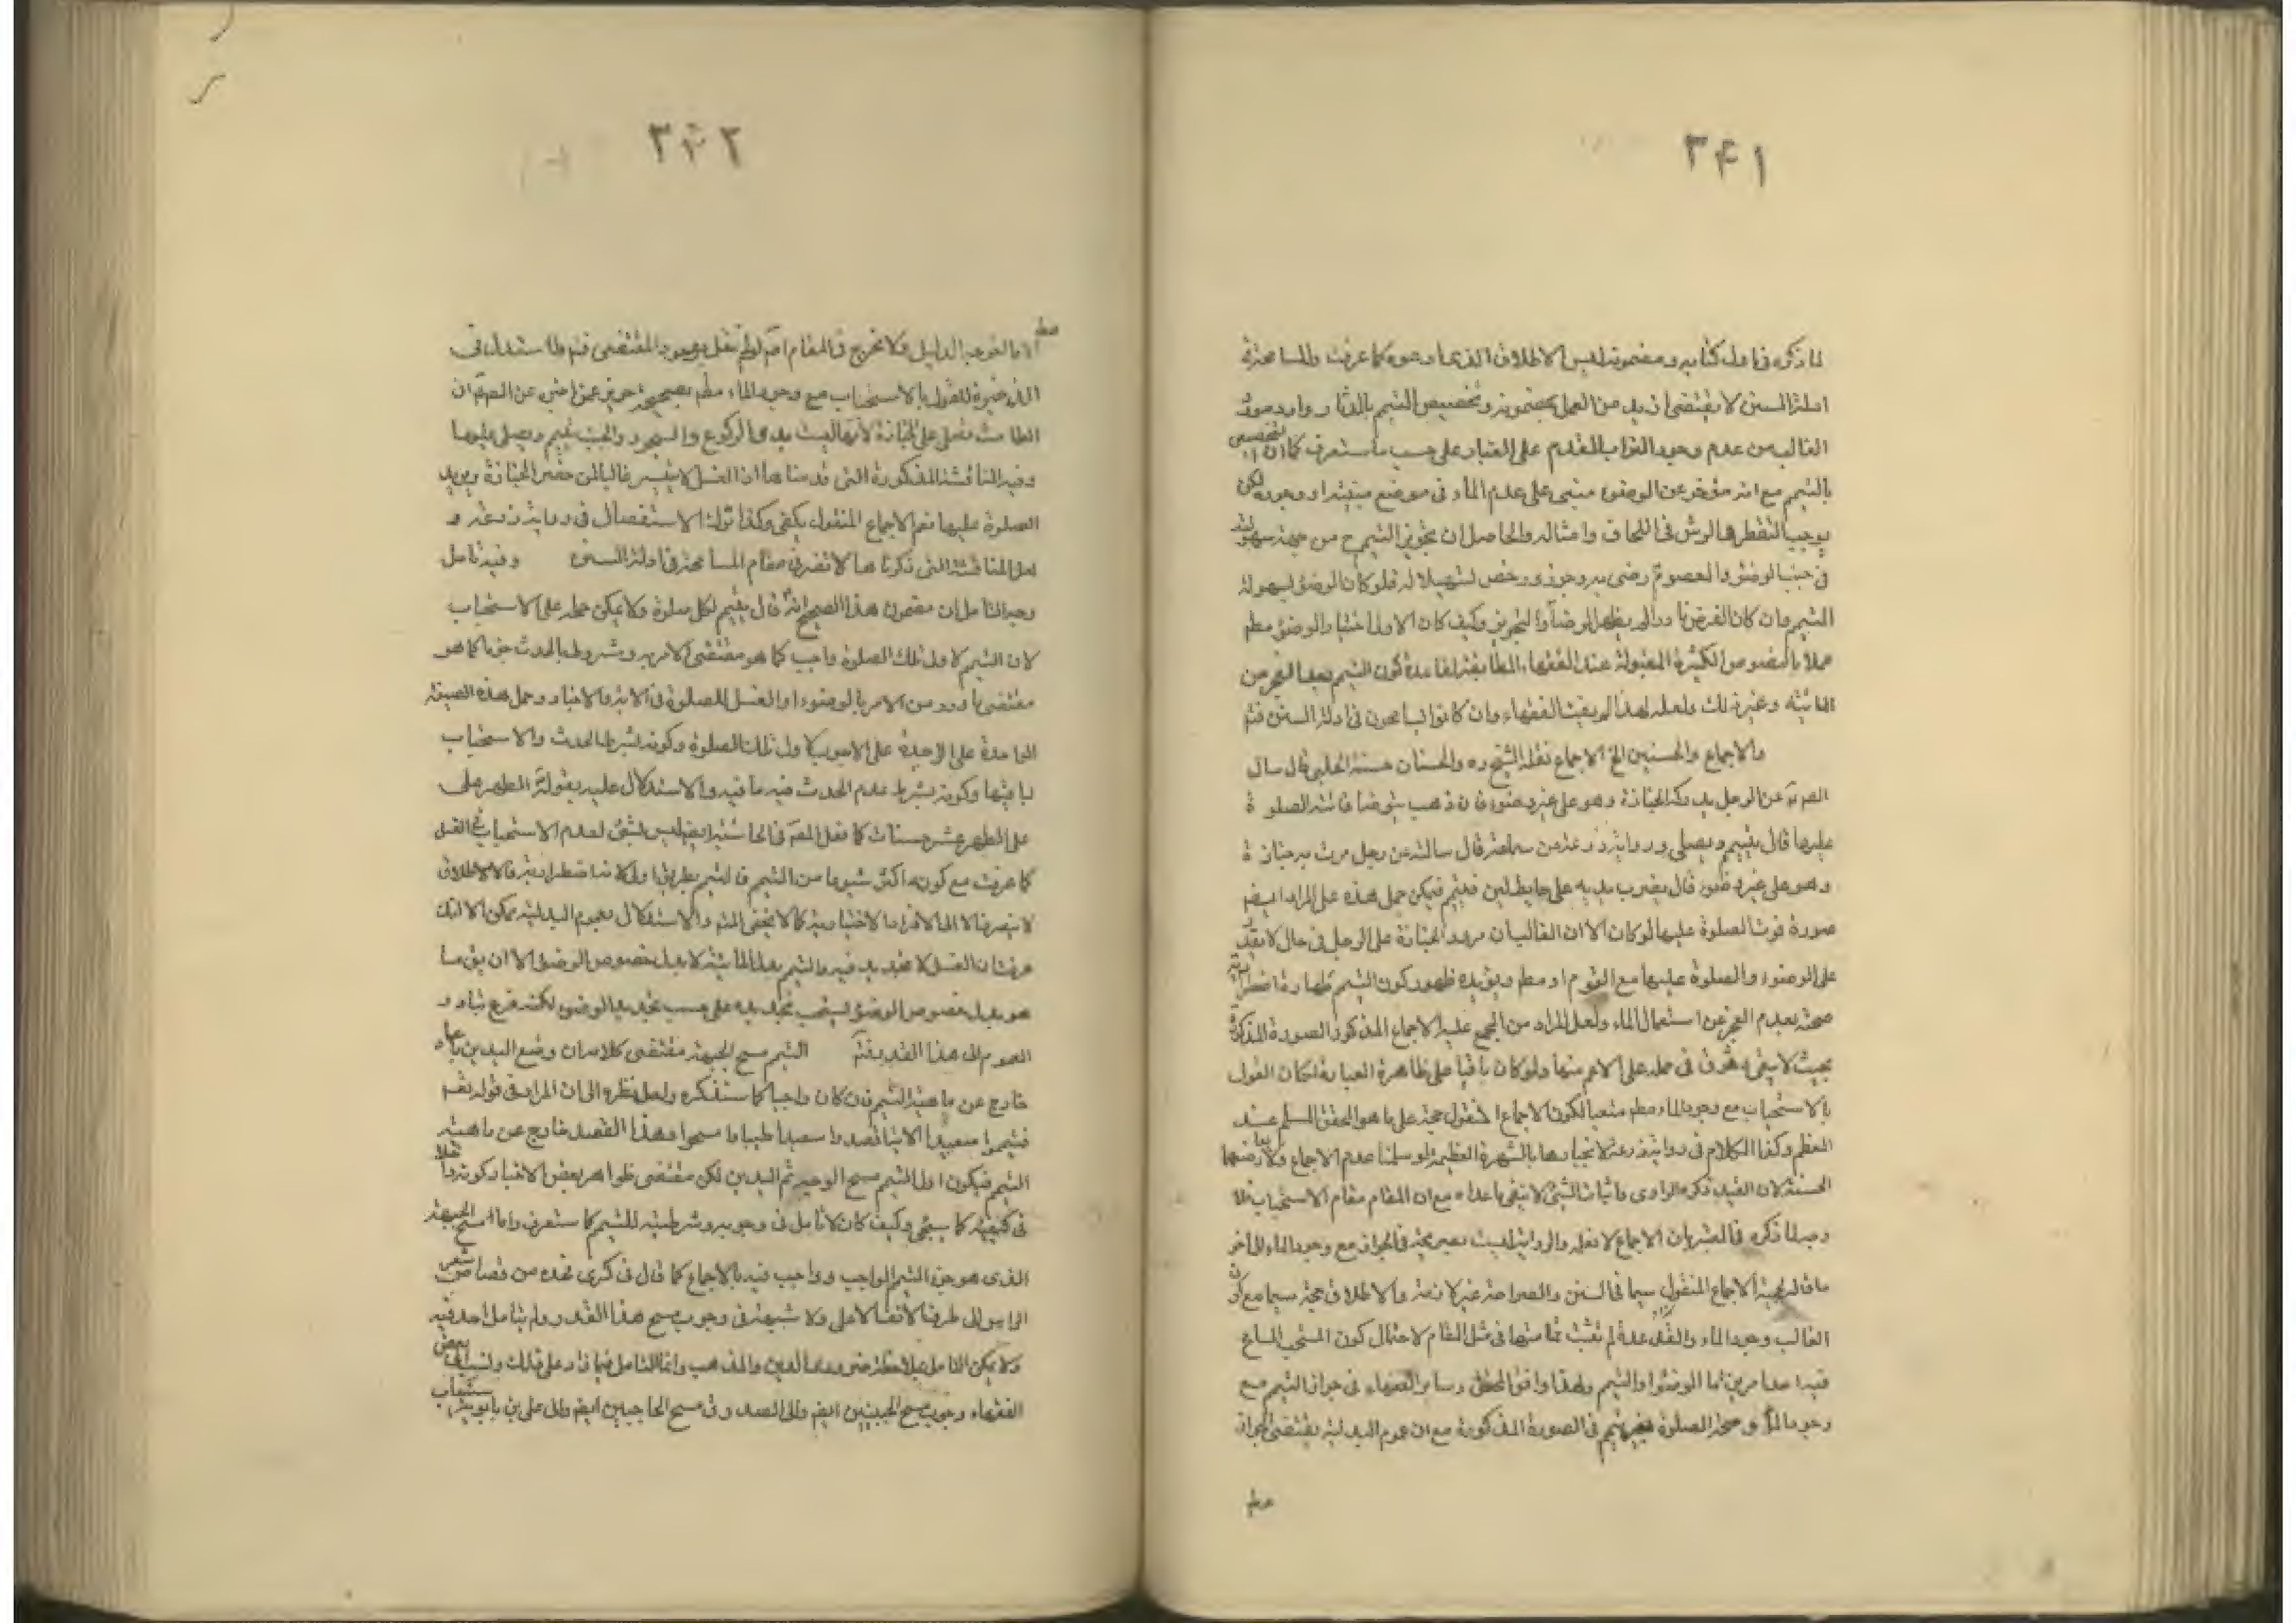 ۳۴۱
لما ذكره في اول كتابه ومضمونه ليس الاطلاق الذي ادعوه كما عرفت والمسامحة في
ادلة السنن لا يقتضي ازيد من العمل بمضمونه وتخصيص التيمم بالدثار وارد مورد
الغالب من عدم وجود التراب المقدم على الغبار على حسب ما ستعرف كما ان التخصيص
بالتيمم مع انه مؤخر عن الوضوء مبني على عدم الماء في موضع وجوده لكن
في اللحاف وامثاله والحاصل ان تجويز التيمم ح من جهة سهولته
في جنب الوضوء والمعصوم رضى به وجوزه ورخص تسهيلا له فلو كان الوضوء بسهولة
التيمم وان كان الفرض نادرا لم يظهر الرضا والتجويز وكيف كان الاولى اختيار الوضوء مطم
عملا بالنصوص الكثيرة المقبولة عند الفقهاء المطابقة لقاعدة كون التيمم بعد العجز من
المائية وغير ذلك ولعله لهذا لم يفت الفقهاء وان كانوا يسامحون في ادلة السنن فتم
والاجماع والحسنين الخ الاجماع نقله الشيخ ره والحسنتان حسنة الحلبي قال سال
الصادق عن الرجل يدركه الجنازة وهو على غير وضوء فان ذهب يتوضا فاتته الصلوة
عليها قال يتيمم ويصلي ورواية زرعة عن سماعة قال سالته عن رجل مرت به جنازة
وهو على غير وضوء قال يضرب بيديه على حايط لبن فيتيمم فيمكن حمل هذه على المراد ايضم
صورة فوت الصلوة عليها لو كان الا ان الغالب ان مرور الجنازة على الرجل في حال لا يقدر
على الوضوء والصلوة عليها مع القوم او مطم ويؤيده ظهور كون التيمم طهارة اضطرارية
صحته بعدم العجز عن استعمال الماء ولعل المراد من المجمع عليه الاجماع المذكور الصورة المذكورة
بحيث لا يبقى وثوق في حمله على الاعم منها ولو كان باقيا على ظاهرة العبارة لكان القول
بالاستحباب مع وجود الماء مطم متعينا لكون الاجماع المنقول حجة على ما هو المحقق المسلم عند
المعظم وكذا الكلام في رواية زرعة لانجبارها بالشهرة العظيمة لو سلمنا عدم الاجماع ولا يعارضها
الحسنة لان القيد ذكره الراوي واثبات الشئ لا ينفي ما عداه مع ان المقام مقام الاستحباب فلا
وجه لما ذكره في المعتبر بان الاجماع لا نعلمه والرواية ليست صريحة في الجواز مع وجود الماء الى اخر
ما قاله لحجية الاجماع المنقول سيما في السنن والصراحة غير لازمة والاطلاق حجة سيما مع كون
الغالب وجود الماء والقاعدة لم يثبت تماميتها في مثل المقام لاحتمال كون المستحب المباح
فيه احد امرين اما الوضوء او التيمم ولهذا وافق المحقق وساير الفقهاء في جواز التيمم مع
وجود الماء وصحة الصلوة بغير تيمم في الصورة المذكورة مع ان عموم البدلية يقتضي الجواز
مطم
۳۴۲
مطم
الا ما اخرجه الدليل ولا مخرج في المقام اصم لو لم نقل بوجود المقتضي فتم فلا استدل في
الذخيرة للقول بالاستحباب مع وجود الماء مطم بصحيحة حريز عمن اخبره عن الصم ان
الطامث تصلي على الجنازة لانها ليست بذي الركوع والسجود والجنب يتيمم ويصلي عليها
وفيه المناقشة المذكورة التي قدمناها اذ الغسل لا يتيسر غالبا لمن حضر الجنازة ويريد
الصلوة عليها نعم الاجماع المنقول يكفي وكذا ترك الاستفصال في رواية زرعة و
لعل المناقشة التي ذكرناها لا تضر في مقام المسامحة في ادلة السنن وفيه تامل
وجه التامل ان مضمون هذا الصحيح انه قال يتيمم لكل صلوة ولا يمكن حمله على الاستحباب
لان التيمم لاول تلك الصلوة واجب كما هو مقتضى الامر به ومشروط بالحدث جزما كما هو
مقتضى ما ورد من الامر بالوضوء او الغسل للصلوة في الاية والاخبار وحمل هذه الصيغة
الواحدة على الوجوب لاول تلك الصلوة وكونه بشرط الحدث والاستحباب
لباقيها وكونه بشرط عدم الحدث فيه ما فيه والاستدلال عليه بقوله الطهر على
على الطهر عشر حسنات كما فعل المصم في الحاشية ايضم ليس بشئ لعدم الاستحباب في الغسل
كما عرفت مع كونه اكثر شيوعا من التيمم فالتيمم بطريق اولى لانها اضطرارية والاطلاق
لا ينصرف الا الى الافراد الاختيارية كما لا يخفى فتم والاستدلال بعموم البدلية يمكن الا انك
عرفت ان الغسل لا تجديد فيه والتيمم بدل المائية لا بدل خصوص الوضوء الا ان يقم ما
هو بدل خصوص الوضوء يستحب تجديده على حسب تجديد الوضوء لكنه فرع تبادر
العموم الى هذا القدر فتم التيمم مسح الجبهة مقتضى كلامه ان وضع اليدين
خارج عن ماهية التيمم وان كان واجبا كما سنذكره ولعل نظره الى ان المراد في قوله تعم
فتيمموا صعيدا الاية اقصدوا صعيدا طيبا وامسحوا وهذا القصد خارج عن ماهية
التيمم فيكون اول التيمم مسح الوجه ثم اليدين لكن مقتضى ظواهر بعض الاخبار كونه داخلا
في كيفيته كما سيجئ وكيف كان لا تامل في وجوبه وشرطيته للتيمم كما ستعرف واما مسح الجبهة
الذي هو جزء التيمم الواجب وواجب فيه بالاجماع كما قال في كرى نحده من قصاص شعر
الراس الى طرف الانف الاعلى ولا شبهة في وجوب مسح هذا القدر ولم يتامل احد فيه
ولا يمكن التامل بملاحظة ضرورة الدين والمذهب وانما التامل فيما زاد على ذلك ونسب الى بعض
الفقهاء وجوب مسح الجبينين ايضم والى الصدوق مسح الحاجبين ايضم والى علي بن بابويه استيعاب